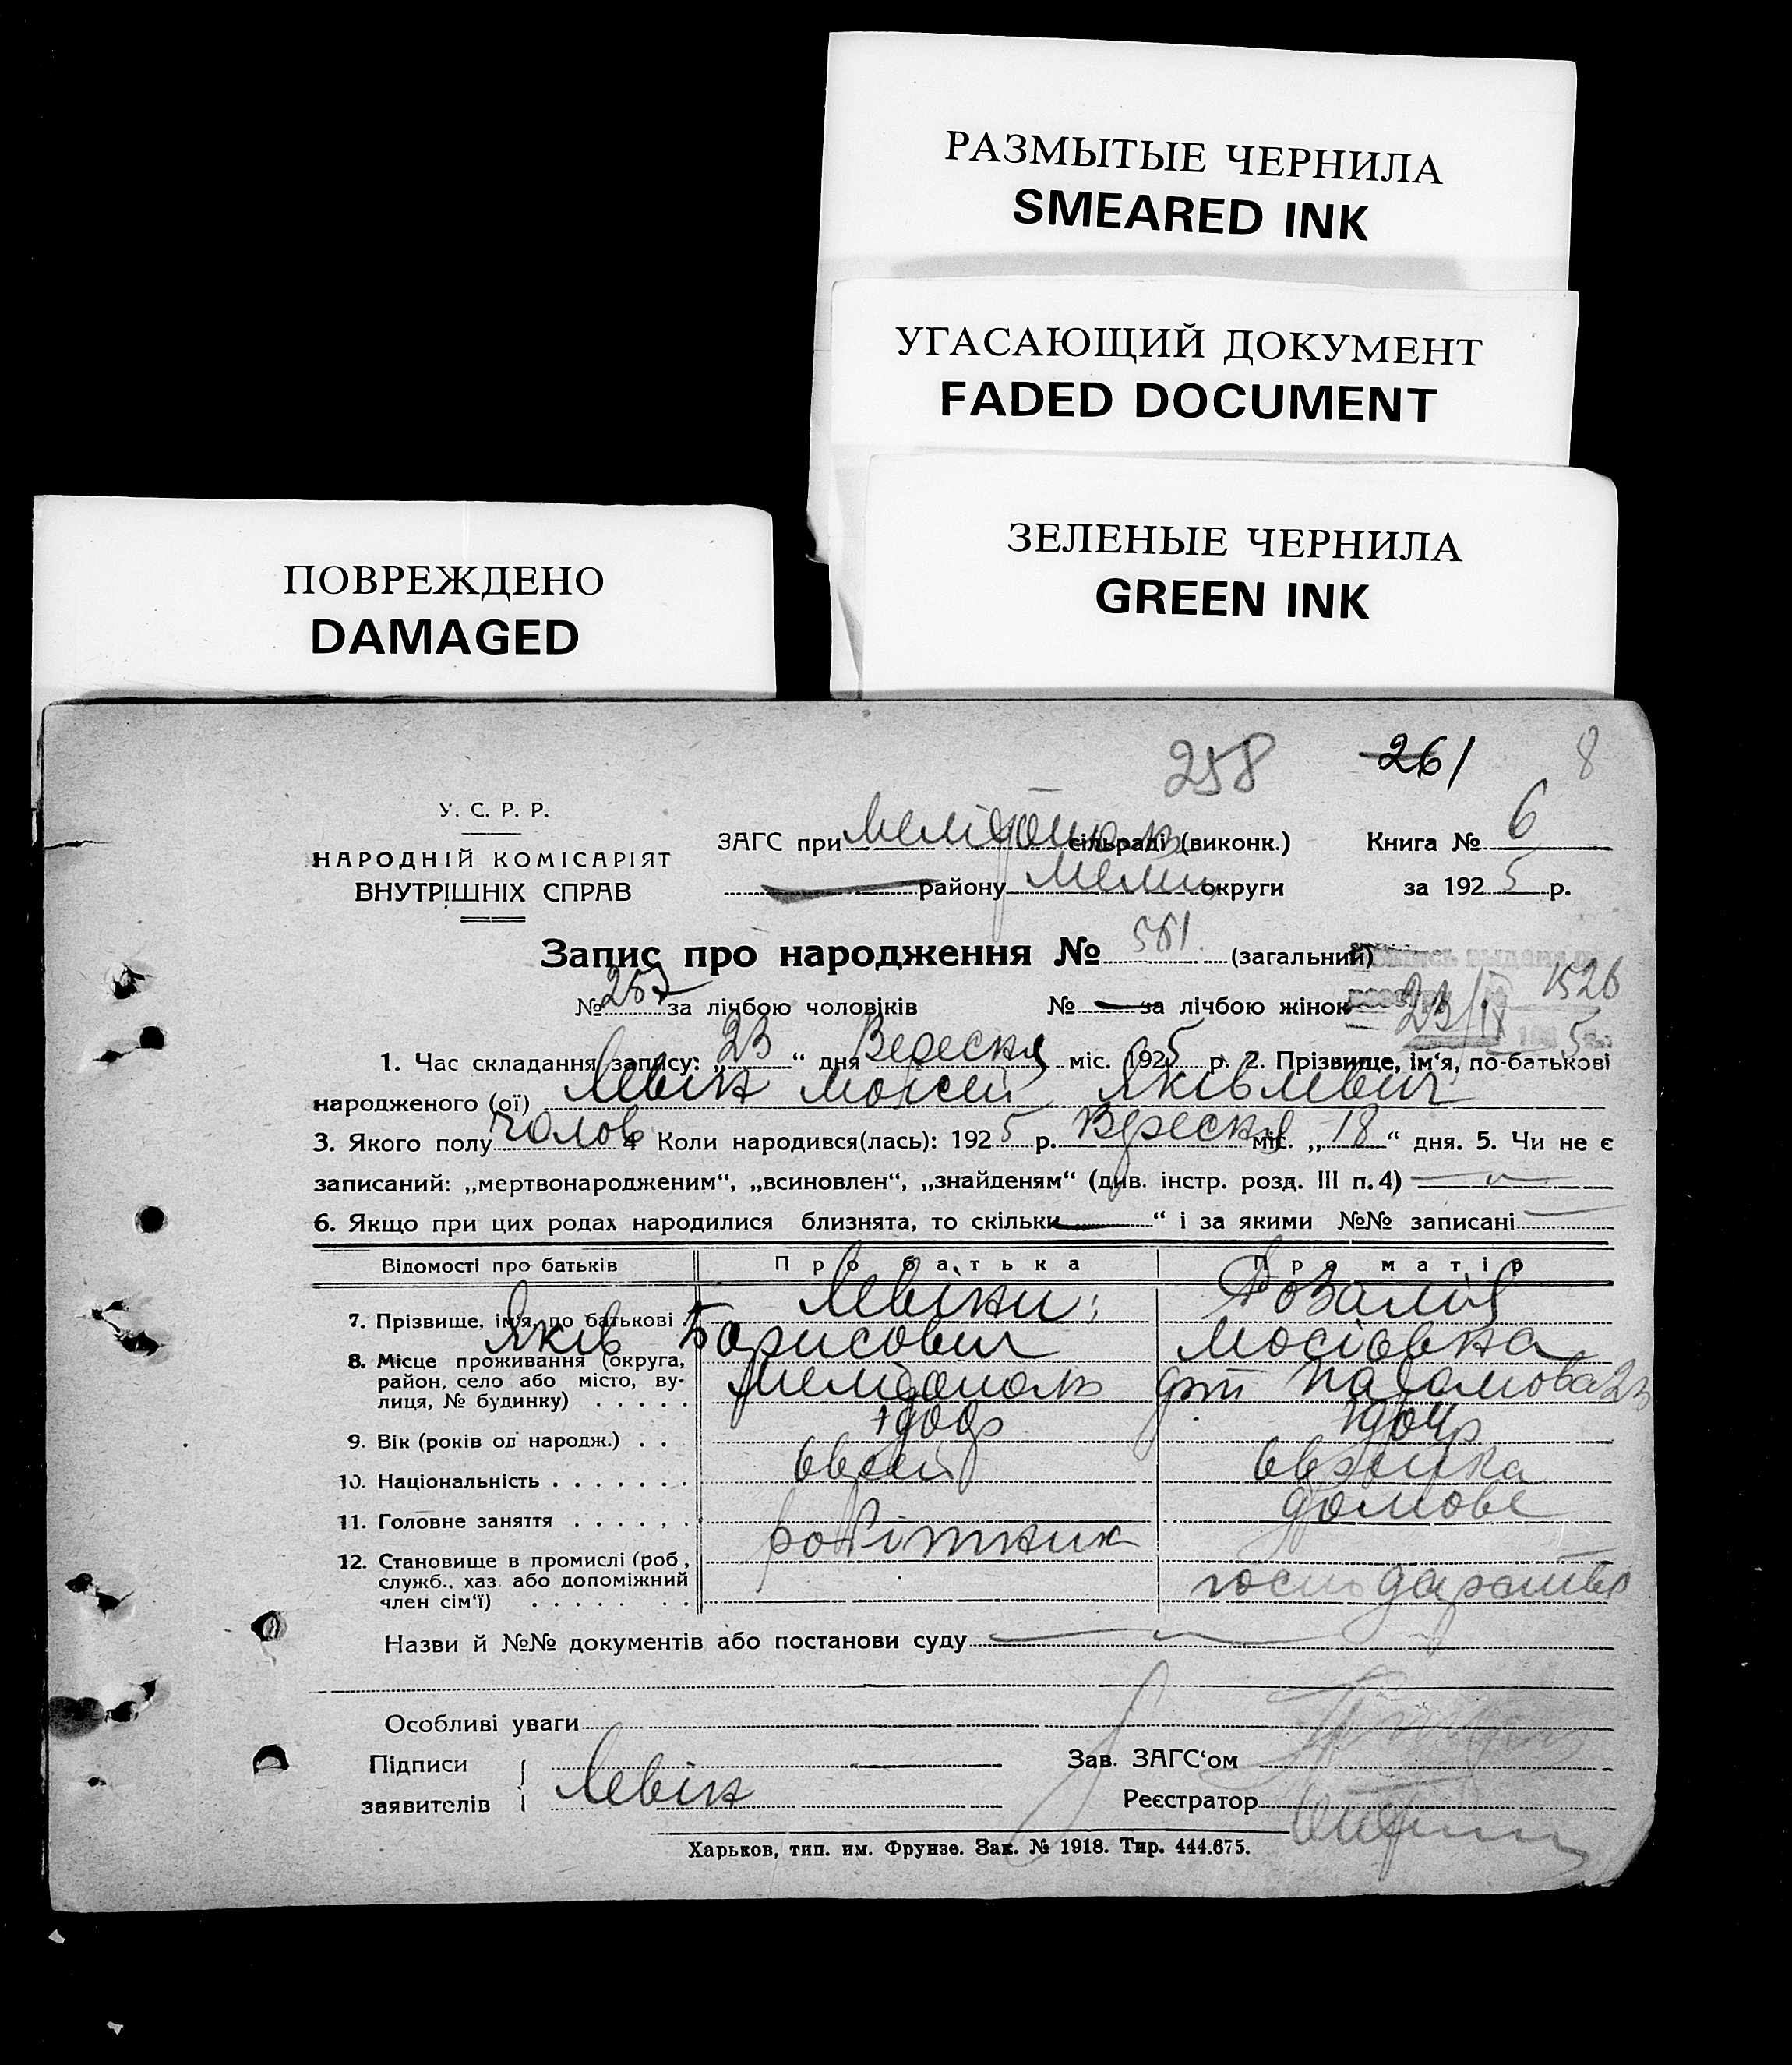 РАЗМЫТЫЕ ЧЕРНИЛА
SMEARED INK
УГАСАЮЩИЙ ДОКУМЕНТ
FADED DOCUMENT
ЗЕЛЕНЫЕ ЧЕРНИЛА
GREEN INK
ПОВРЕЖДЕНО
DAMAGED
258 261 8
У. С. Р. Р.
НАРОДНІЙ КОМІСАРІЯТ
ВНУТРІШНІХ СПРАВ
ЗАГС при сільраді (виконк.) Книга № 6
району Меліт округи за 1925 р.
Запис про народження № 561 (загальний)
№ 257 за лічбою чоловіків № за лічбою жінок 23/IX 1526
1. Час складання запису: „23“ дня Вересня міс. 1925 р. 2. Прізвище, ім‘я, по-батькові
народженого (ої) Левін Мойсей Яківлевич
3. Якого полу чолов 4 Коли народився(лась): 1925 р. Вересня міс. „18“ дня. 5. Чи не є
записаний: „мертвонародженим“, „всиновлен“, „знайденям“ (див. інстр. розд. III п. 4)
6. Якщо при цих родах народилися близнята, то скільки “ і за якими №№ записані
Відомості про батьків Про батька Про матір
7. Прізвище, ім‘я, по батькові Левіни; Розалія
Яків Борисович Мосіївна
8. Місце проживання (округа, район, село або місто, вулиця, № будинку) Мелітополь
9. Вік (років од народж.)
10. Національність еврей еврейка
11. Головне заняття домове
робітник
12. Становище в промислі (роб, служб., хаз або допоміжний член сім‘ї) господарство
Назви й №№ документів або постанови суду
Особливі уваги
Підписи Зав. ЗАГС‘ом
заявителів Левін Реєстратор
Харьков, тип. им. Фрунзе. Зак. № 1918. Тир. 444.675.